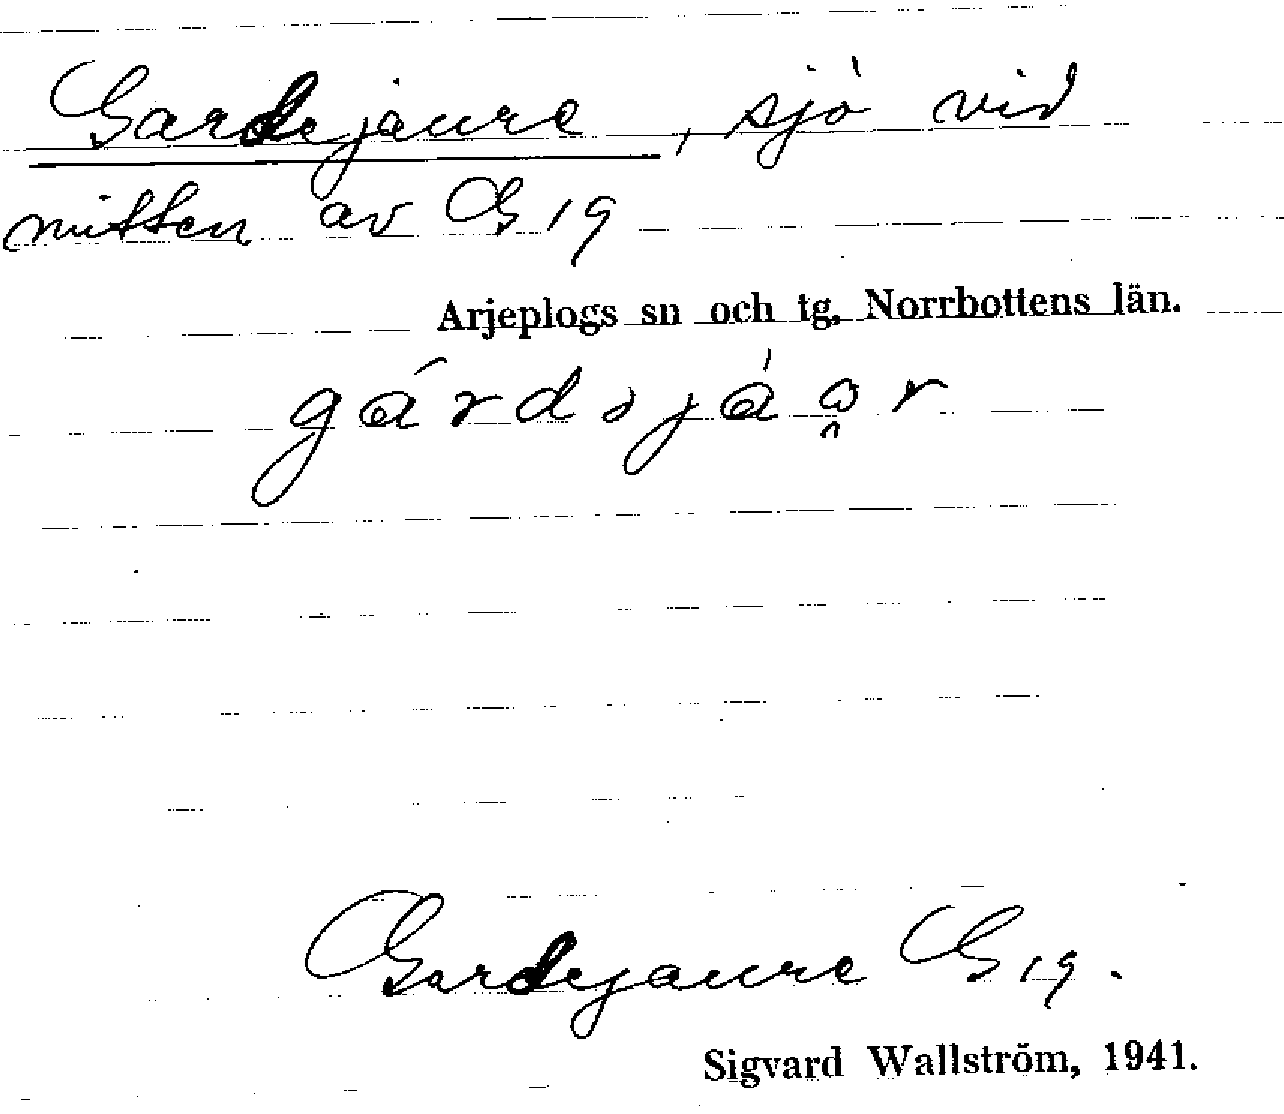 Gardejaure, sjö vid
mitten av G 19
Arjeplogs sn och tg, Norrbottens län.
Gardejaure G 19.
Sigvard Wallström, 1941.